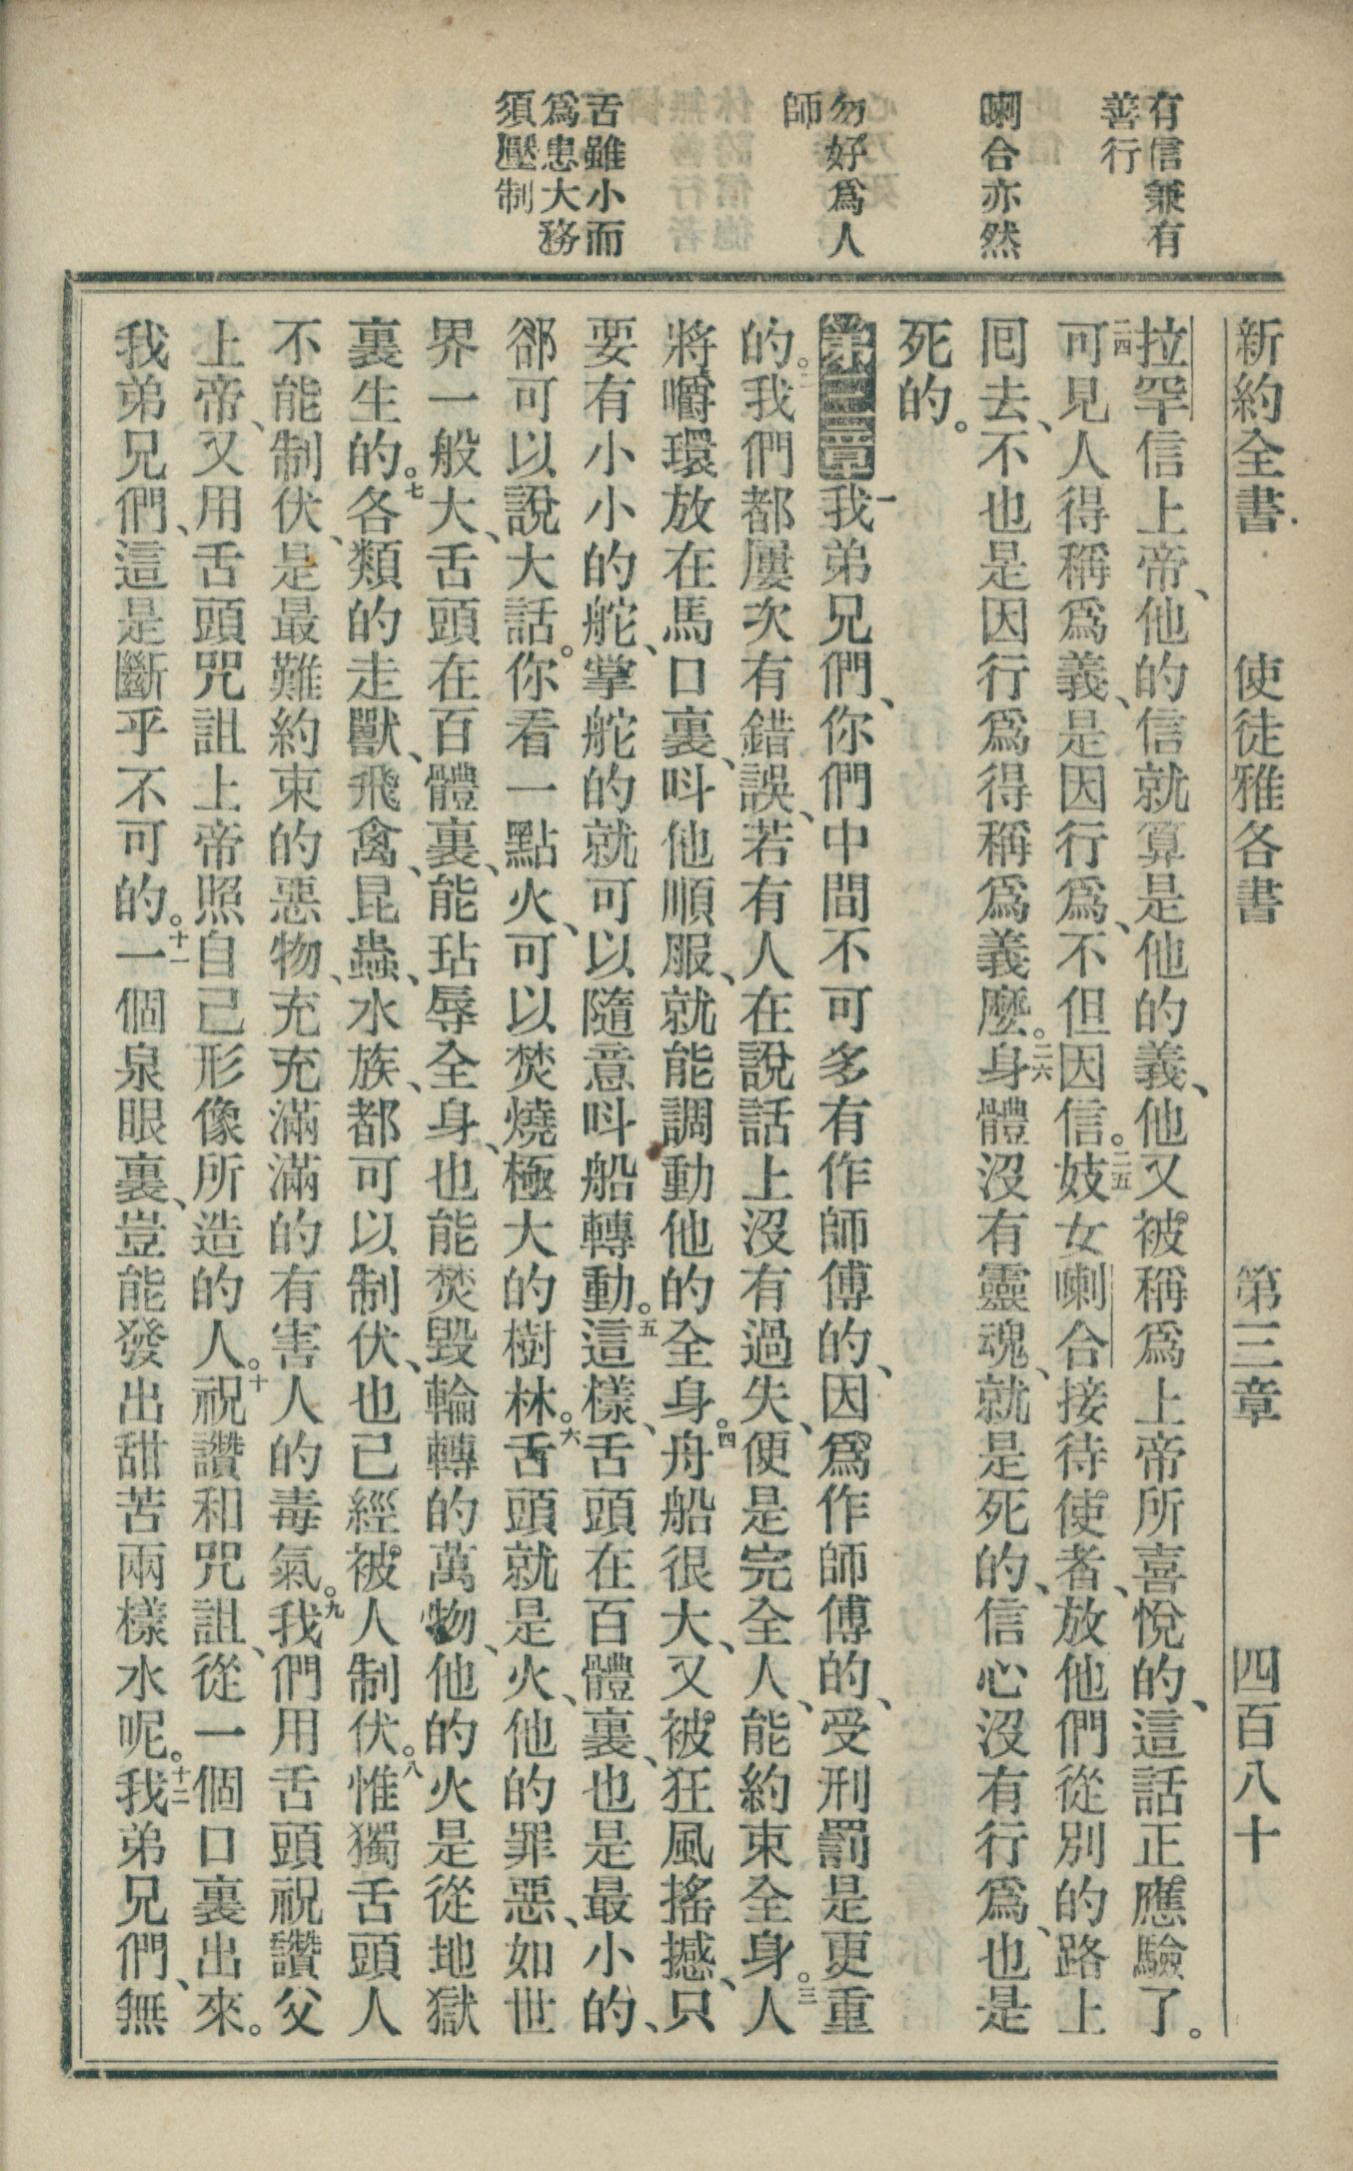 新約全書　使徒雅各書　第三章　四百八十
有信兼有
善行
喇合亦然
勿好爲人
師
舌雖小而
爲患大務
須壓制
拉罕信上帝、他的信就算是他的義、他又被稱爲上帝所喜悅的、這話正應驗了。
二四可見人得稱爲義、是因行爲、不但因信。二五妓女喇合接待使者、放他們從別的路上
囘去、不也是因行爲得稱爲義麽。二六身體沒有靈魂、就是死的、信心沒有行爲、也是
死的。
第三章一我弟兄們、你們中間不可多有作師傅的、因爲作師傅的、受刑罰是更重
的。二我們都屢次有錯誤、若有人在說話上沒有過失、便是完全人、能約束全身。三人
將嚼環放在馬口裏、呌他順服、就能調動他的全身。四舟船很大、又被狂風搖撼、只
要有小小的舵、掌舵的就可以隨意呌船轉動。五這樣、舌頭在百體裏、也是最小的、
郤可以說大話。你看一點火、可以焚燒極大的樹林。六舌頭就是火、他的罪惡、如世
界一般大、舌頭在百體裏、能玷辱全身、也能焚毀輪轉的萬物、他的火是從地獄
裏生的。七各類的走獸、飛禽、昆蟲、水族、都可以制伏、也已經被人制伏。八惟獨舌頭人
不能制伏、是最難約束的惡物、充充滿滿的有害人的毒氣。九我們用舌頭祝讚父
上帝、又用舌頭咒詛上帝照自己形像所造的人。十祝讚和咒詛、從一個口裏出來。
我弟兄們、這是斷乎不可的。十一一個泉眼裏、豈能發出甜苦兩樣水呢。十二我弟兄們、無